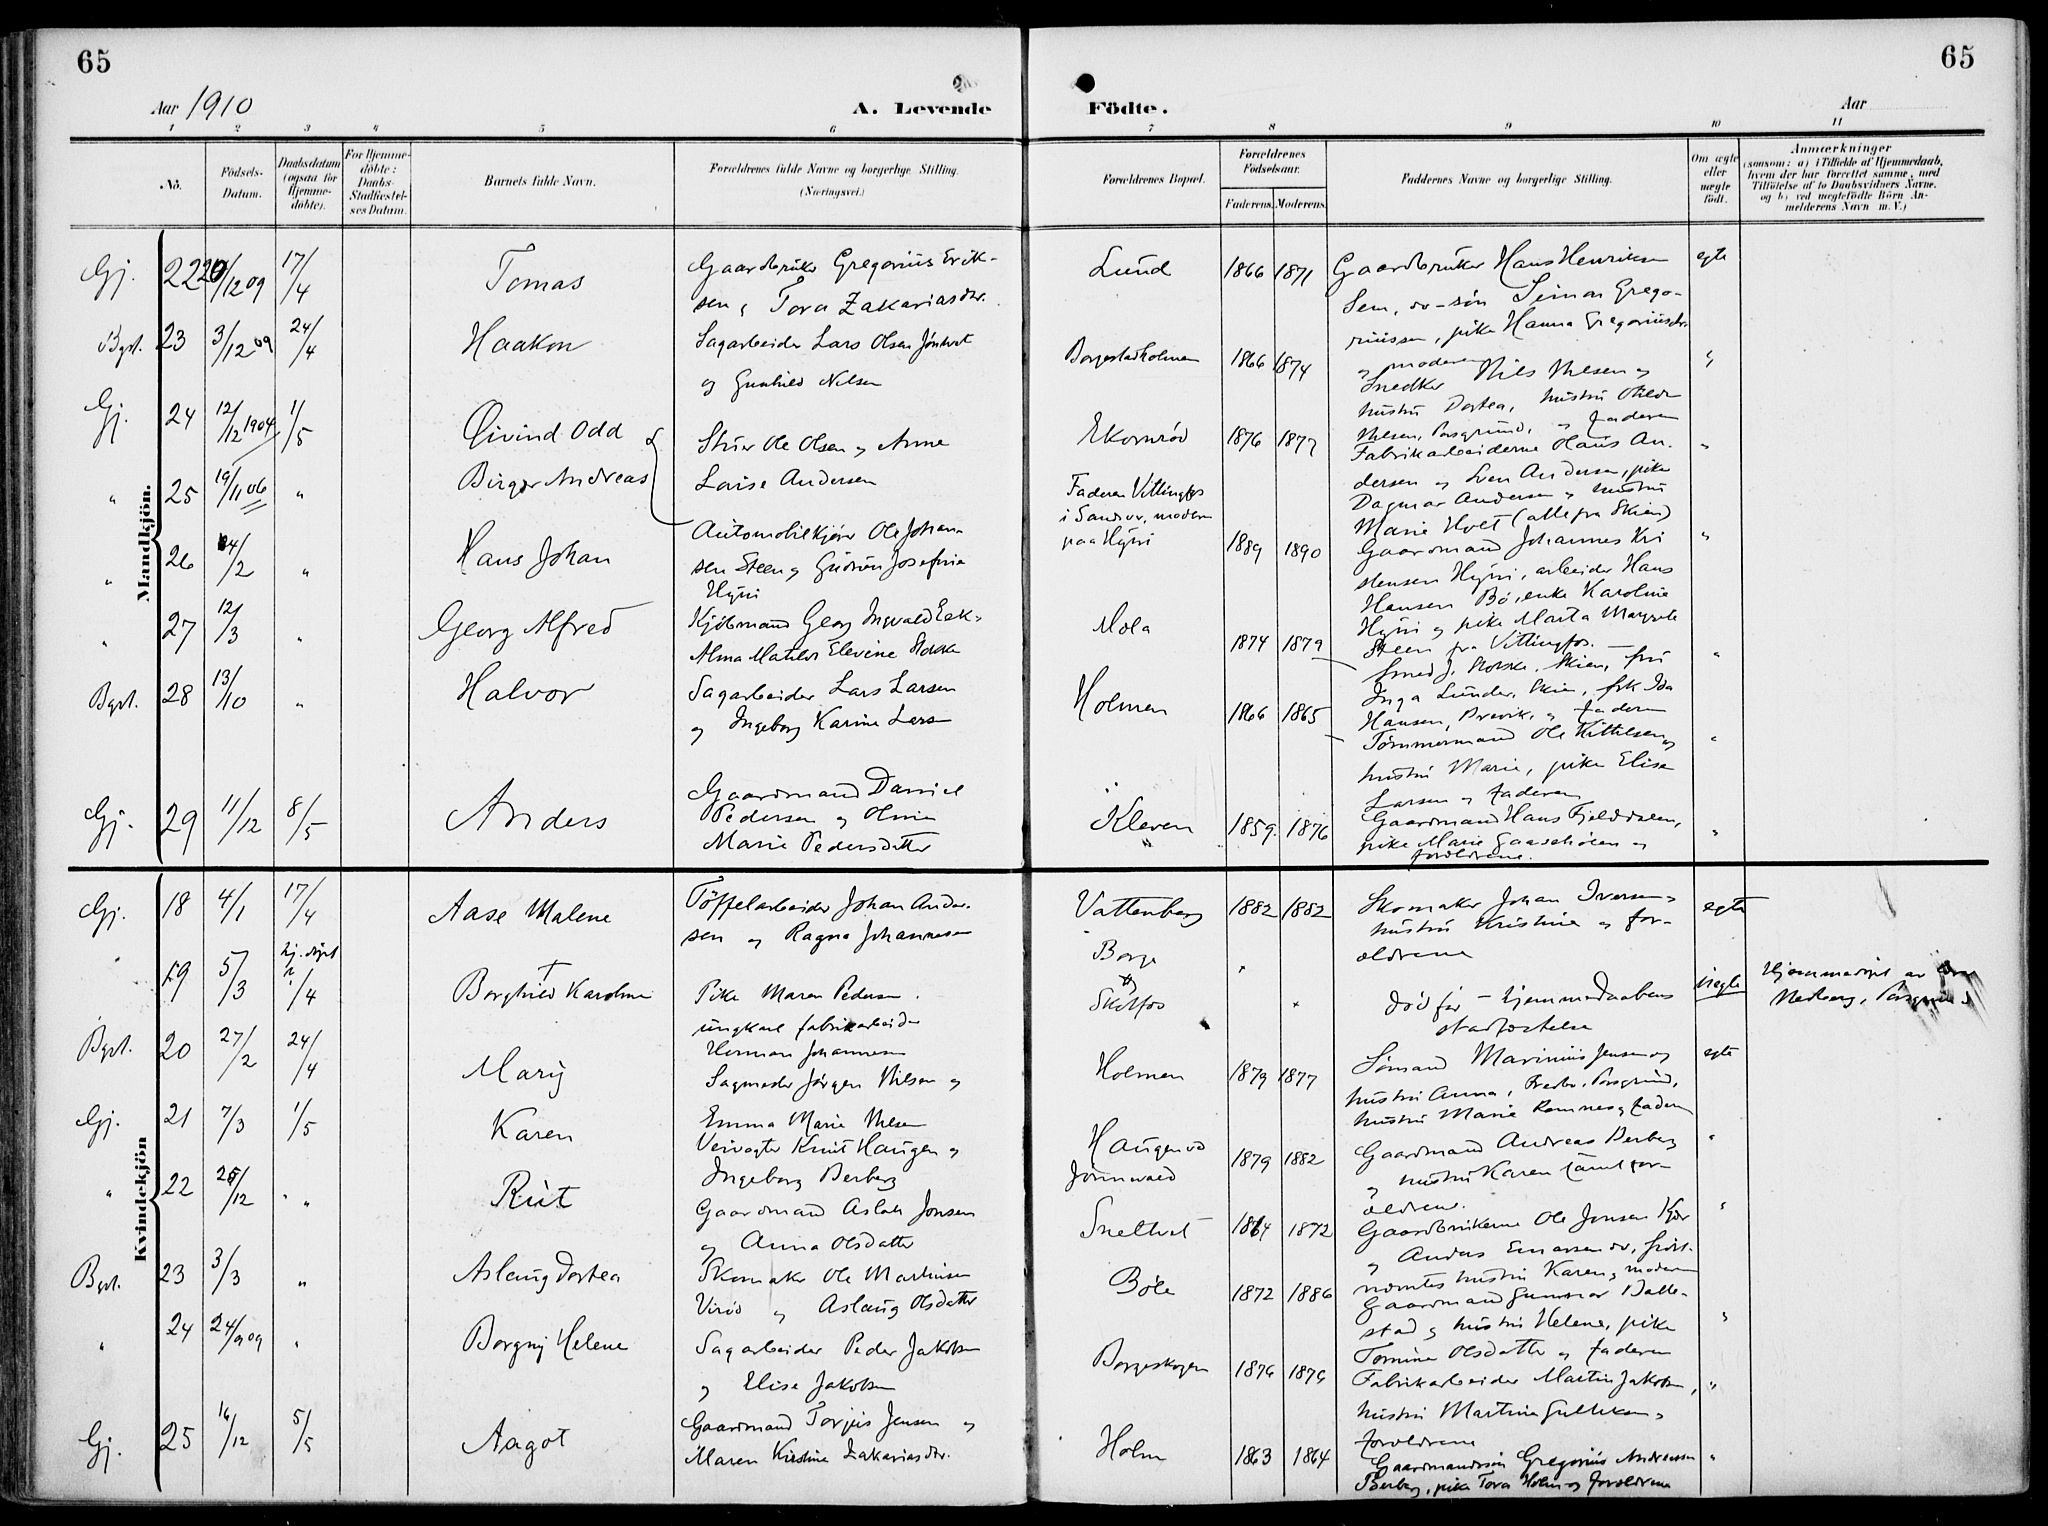 65
65
Aar 1910
A. Levende
Födte.
Aar
1 2 3 4 5 6 7 8 9 10 11
No.
Födsels-Datum.
Daabsdatum (ogsaa for Hjemme-döbte).
For Hjemme-döbte: Daabs-Stadfæstel-ses Datum.
Barnets fulde Navn.
Forældrenes fulde Navne og borgerlige Stilling. (Næringsvei.)
Forældrenes Bopæl.
Forældrenes Födselsaar.
Faderens. Moderens.
Faddernes Navne og borgerlige Stilling.
Om ægte eller uægte födt.
Anmærkninger
(saasom: a) i Tilfælde af Hjemmedaab,
hvem der har forrettet samme, med
Tilföielse af to Daabsvidners Navne.
og b) ved uægtefödte Börn An-
melderens Navn m. V.)
Mandkjön.
Gj. 22 /12 09 17/4 Tomas
Gaardbruker Gregorius Erik-
sen & Tora Zakariasdtr.
Lund 1866 1871
Gaardbruker Hans Henriksen
sen, do-søn Simon Grego-
riussen, pike Hanna Gregoriusdtr.
og moderen
egte
Bgst. 23 3/12 09 24/4 Haakon
Sagarbeider Lars Olsen
og Gunhild Nilsen
Borgestadholmen 1866 1874
Snedker Nils Nilsen og
hustru Dortea, hustru
Nilsen, Porsgrund, og faderen
"
Gj. 24 12/12 1904 1/5 Øivind Odd
" 25 19/11 06 " Birger Andreas
Ole Olsen og Anne
Laise Andersen
Ekornrød 1876 1877
Fabrikarbeiderne Hans An-
dersen og Sven Andersen, pike
Dagmar Andersen og hustru
Marie Holt (alle fra Skien)
"
" 26 /2 " Hans Johan
Automobilkjører Ole Johan-
sen Steen og Gudrun Josefine
Hyni
Faderen Vittingfos
i Sandsv., moderen
paa Hyni
1889 1890
Gaardmand Johannes Kri
stensen Hyni, arbeider Hans
Hansen Bö, enke Karoline
Hyni og pike Marta Margrete
Steen fra Vittingfos.
"
" 27 12/3 " Georg Alfred
Kjøbmand Georg Ingvald Eek-
Alma Matilde Elevine Stokke
Mola 1874 1879
Smed J. Stokke, Skien, fru
Inga Lunde, Skien, frk Ida
Hansen, Brevik, og faderen
"
Bgst. 28 13/10 " Halvor
Sagarbeider Lars Larsen
og Ingeborg Karine Lars
Holmen 1866 1865
Tømmermand Ole Kittilsen og
hustru Marie, pike Elise
Larsen og faderen
"
Gj. 29 11/12 8/5 Anders
Gaardmand Daniel
Pedersen og Oline
Marie Pedersdatter
Kleven
"
1859. 1876
Gaardmand Hans Fjelddalen,
pike Marie Gaaseholen og
forældrene.
"
Kvindekjön
Gj. 18 4/1 17/4 Aase Malene
Töffelarbeider Johan Ander-
sen og Ragna Johannesen
Vattenberg 1882 1882
Skomaker Johan Iversen,
hustru Kristine og for-
ældrene
egte
" 19 5/3 hj. døpt /4 Borghild Karoline
Pike Maren Pedersen.
ungkarl fabrikarbeider
Herman Johannesen
Borge
og
Skotfos
"
"
død før hjemmedaabens
stadfæstelse
uegte
Hjemmedøpt av
Porsgrund
Bgst. 20 27/2 24/4 Mary
Sagmester Jørgen Nilsen og
Emma Marie Nilsen
Holmen 1879 1877
Sømand Marinius Jensen og
hustru Anna, Porsgrund,
hustru Marie Ramnes og faderen
egte
Gj. 21 7/3 1/5 Karen
Veivogter Knut Haugen og
Ingeborg Berberg
Haugen vd
Jönnevald
1879 1882
Gaardmand Andreas Berberg
og hustru Karen samt for-
ældrene.
"
" 22 /12 " Rut
Gaardmand Aslak Jonsen
og Anna Olsdatter
Sneltvet 1864 1872
Gaardbrukerne Ole Jonsen
og Anders Einarsen do, først-
nævntes hustru Karen, moderen
"
Bgst. 23 3/3 " Aslaug Dortea
Skomaker Ole Martinsen
Virød og Aslaug Olsdatter
Böle 1872 1886
Gaardmand Gunnar Balle-
stad og hustru Helene, pike
Tomine Olsdatter og faderen
"
" 24 24/9 09 " Borgny Helene
Sagarbeider Peder Jakobsen
og Elise Jakobsen
Borgeskogen 1876 1876
Fabrikarbeider Martin Jakobsen,
hustru Martine Gulliksen,
forældrene
"
Gj. 25 16/12 5/5 Aagot
Gaardmand Torjus Jensen og
Maren Kirstine Zakariasdtr.
Holm 1863 1864
Gaardmandssøn Gregorius Andreassen
Berberg, pike Tora Holm og forældrene
"